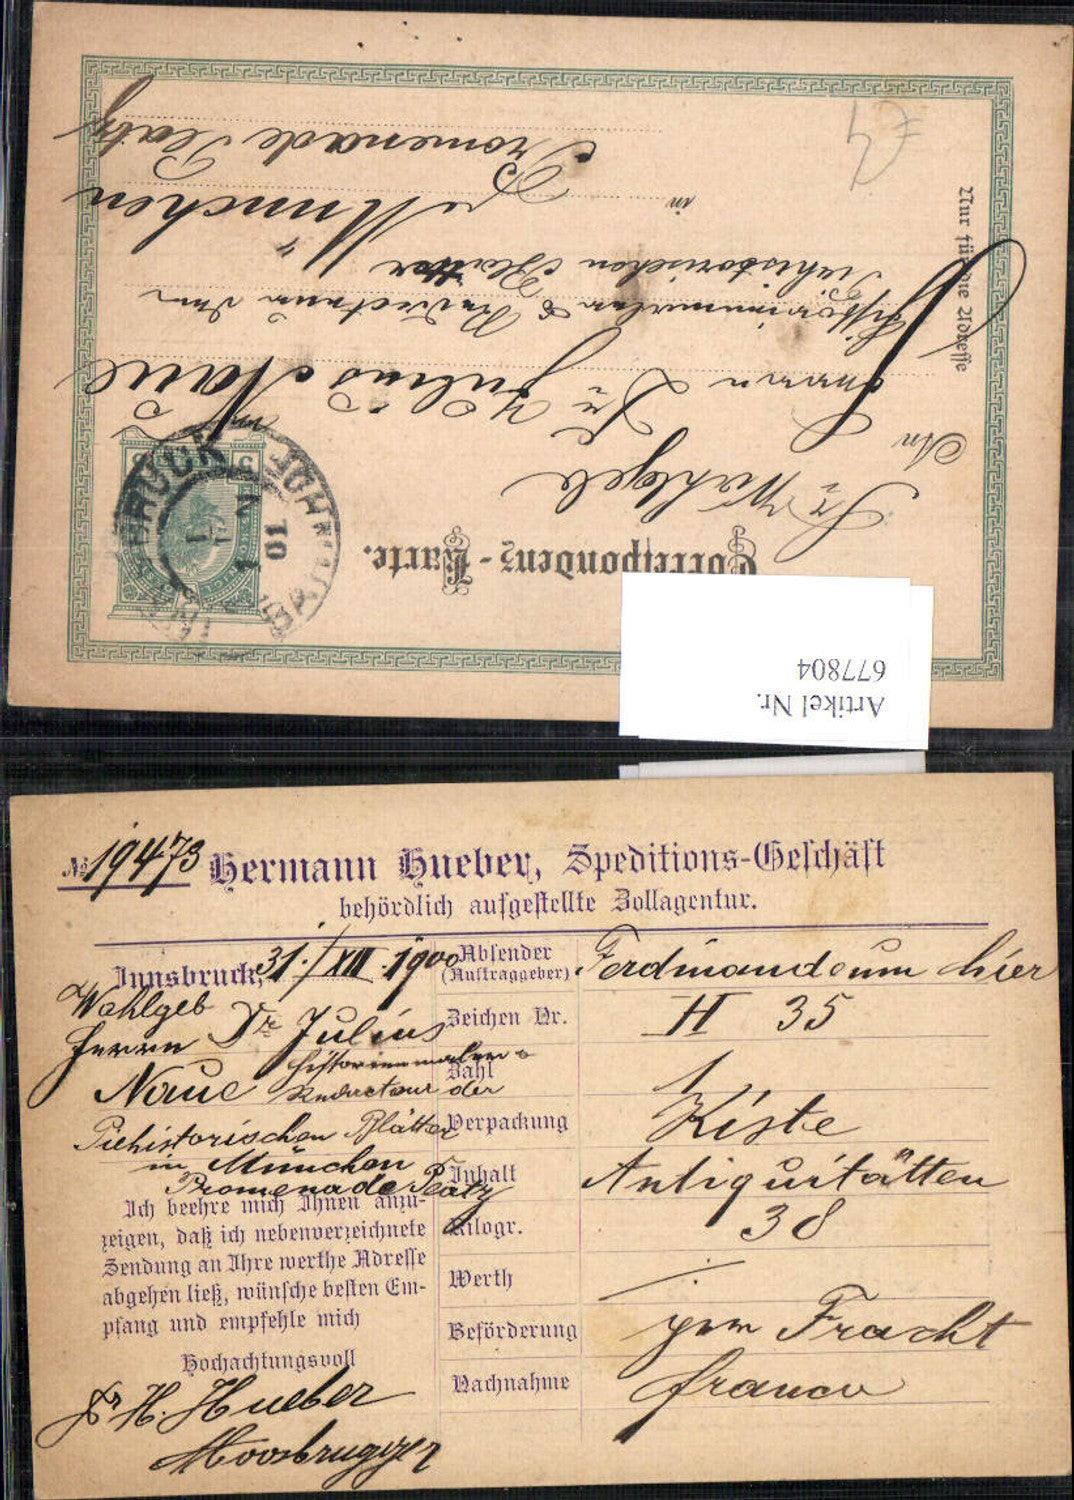 Correspondenz-Karte.
Sr Wohlgeb
An
Herrn Dr Julius Naue
Historienmaler & Redacteur der
Prehistorischen Blätter
in München
Promenade Platz
Nur für die Adresse
Artikel Nr.
677804
№ 19473
Hermann Hueber, Speditions-Geschäft
behördlich aufgestellte Zollagentur.
Innsbruck, 31./XII. 1900
Wohlgeb
Herrn Dr Julius
Naue Historienmaler &
Redacteur der
Prehistorischen Blätter
in München
Promenade Platz
Ich beehre mich Ihnen anzu-
zeigen, daß ich nebenverzeichnete
Sendung an Ihre werthe Adresse
abgehen ließ, wünsche besten Em-
pfang und empfehle mich
Hochachtungsvoll
pr H. Hueber
Moosbrugger
Absender
(Auftraggeber) Ferdinandeum hier
Zeichen Nr. H 35
Zahl 1
Verpackung Kiste
Inhalt Antiquitätten
Kilogr. 38
Werth ./.
Beförderung per Fracht
Nachnahme franco